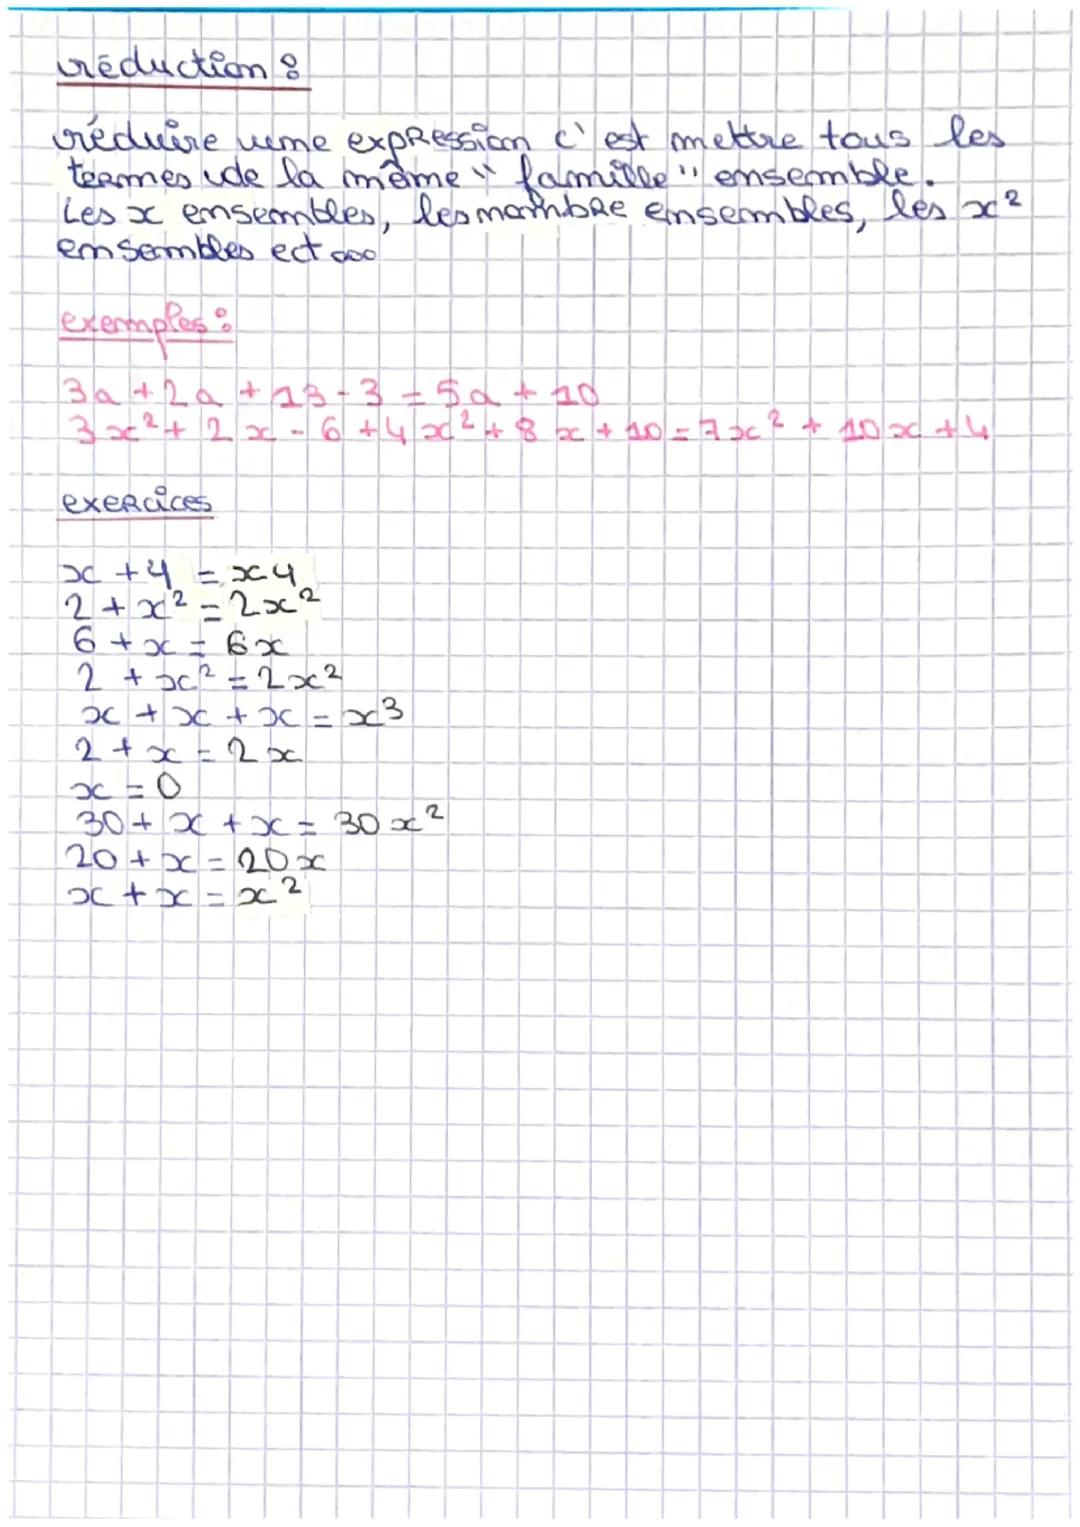 réduction :
réduire une expression c'est mettre tous les
termes de la même " famille " ensemble.
Les x ensembles, les nombre ensembles, les x²
ensembles ect...
exemples :
3a + 2a + 13 - 3 = 5a + 10
3x² + 2x - 6 + 4x² + 8x + 10 = 7x² + 10x + 4
exercices
x + 4 = x4
2 + x² = 2x²
6 + x = 6x
2 + x² = 2x²
x + x + x = x3
2 + x = 2x
x = 0
30 + x + x = 30x²
20 + x = 20x
x + x = x²